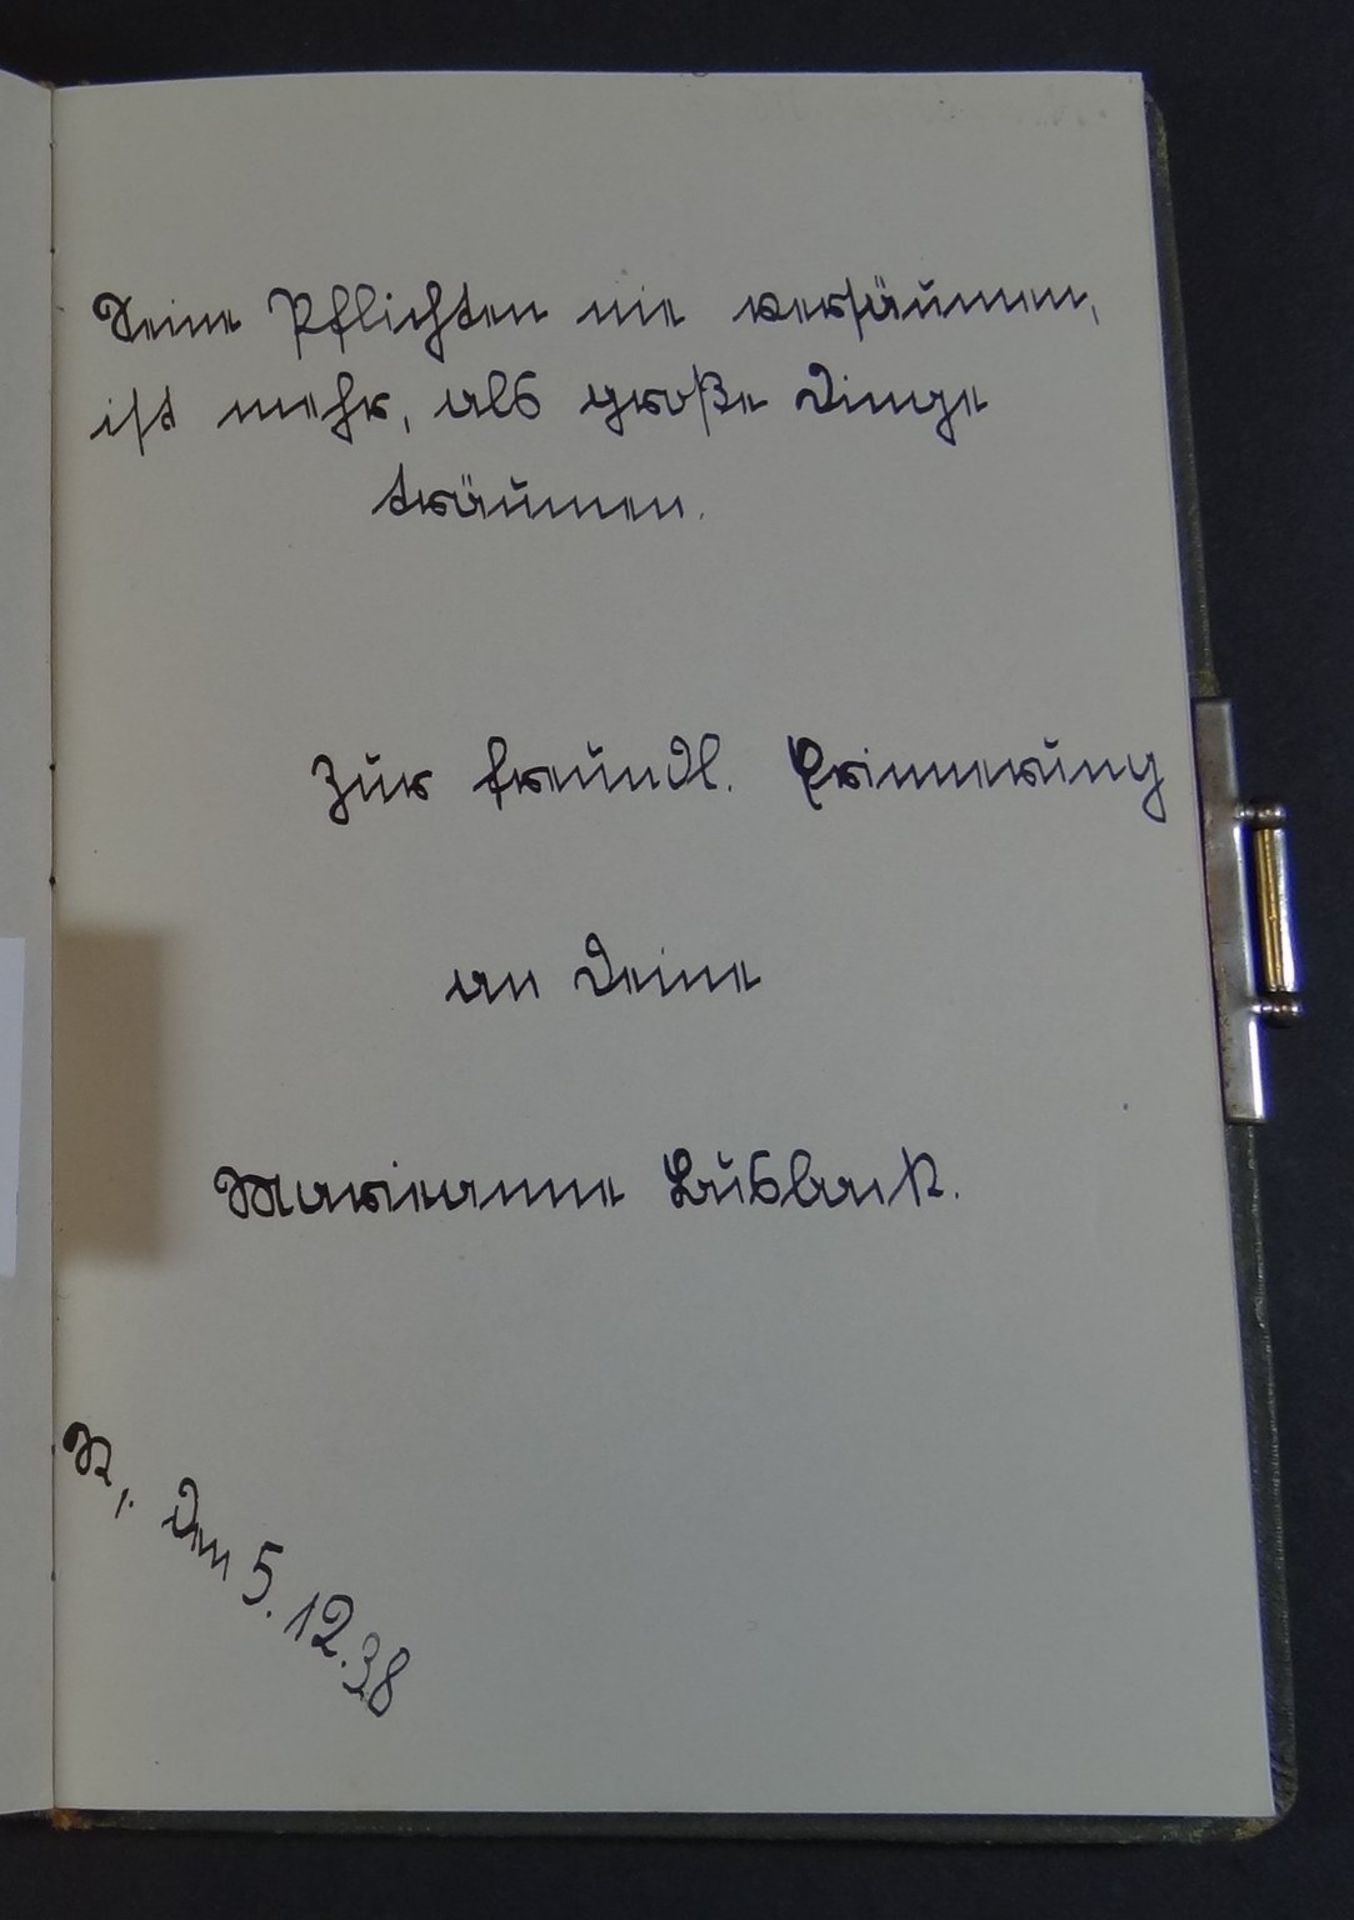 Seine Pflichten nie versäumen,
ist mehr, als große Dinge
träumen.
Zur freundl. Erinnerung
an Deine
Marianne
den 5.12.38